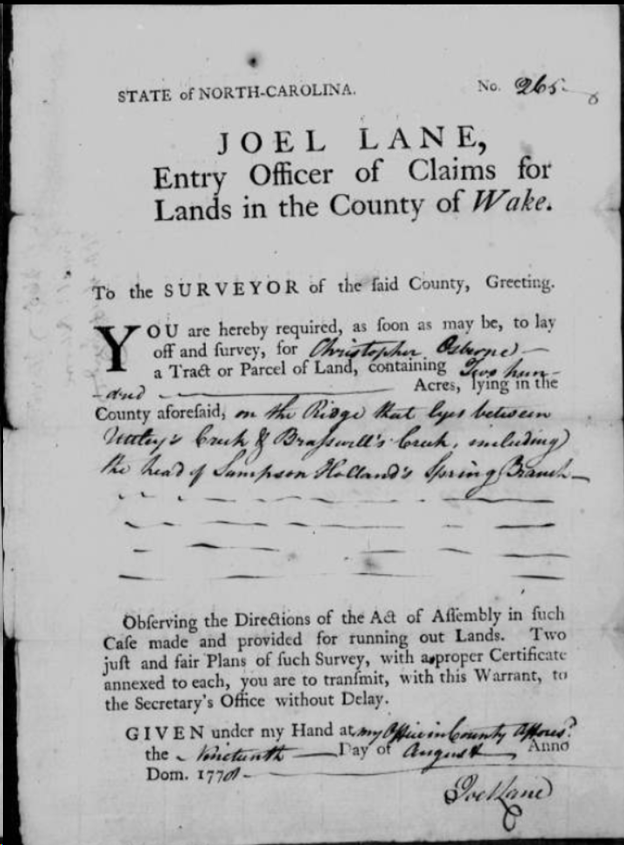 STATE of NORTH-CAROLINA. No. 265
JOEL LANE,
Entry Officer of Claims for
Lands in the County of Wake.
To the SURVEYOR of the ſaid County, Greeting.
YOU are hereby required, as ſoon as may be, to lay
off and ſurvey, for Christopher Osborne
a Tract or Parcel of Land, containing Two hun-
-dred Acres, lying in the
County aforeſaid, on the Ridge that lyes between
Uttley's Creek & Braſswell's Creek, including
the head of Sampson Holland's Spring Branch
Obſerving the Directions of the Act of Aſſembly in ſuch
Caſe made and provided for running out Lands. Two
juſt and fair Plans of ſuch Survey, with a proper Certificate
annexed to each, you are to tranſmit, with this Warrant, to
the Secretary's Office without Delay.
GIVEN under my Hand at my Office in County Affores?
the Nineteenth Day of August Anno
Dom. 1778
Joel Lane